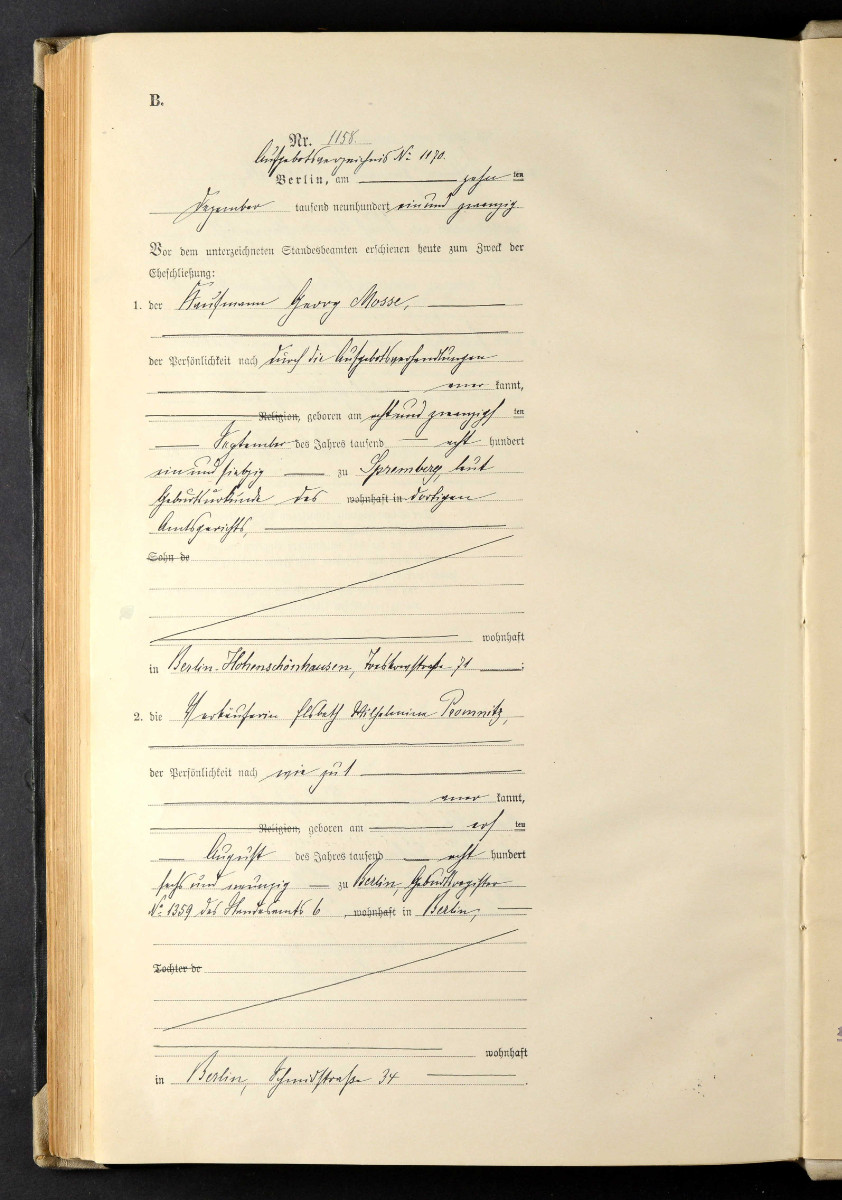 B.
Nr. 1158.
Aufgebotsverzeichnis No 1170.
Berlin, am zehn ten
Dezember tausend neunhundert ein und zwanzig.
Vor dem unterzeichneten Standesbeamten erschienen heute zum Zweck der
Eheschließung:
1. der Kaufmann Georg Mosse,
der Persönlichkeit nach durch die Aufgebotsverhandlungen
aner kannt,
Religion, geboren am acht und zwanzigs ten
September des Jahres tausend acht hundert
ein und siebzig zu Spremberg, laut
Geburtsurkunde des wohnhaft in dortigen
Amtsgerichts,
Sohn de
wohnhaft
in Berlin-Hohenschönhausen, 71;
2. die Verkäuferin Elsbeth Wilhelmine Promnitz,
der Persönlichkeit nach wie zu 1
aner kannt,
Religion, geboren am ers ten
August des Jahres tausend acht hundert
sechs und neunzig zu Berlin, Geburtsregister
No 1359 des Standesamts 6, wohnhaft in Berlin,
Tochter de
wohnhaft
in Berlin, Schmidstraße 34.